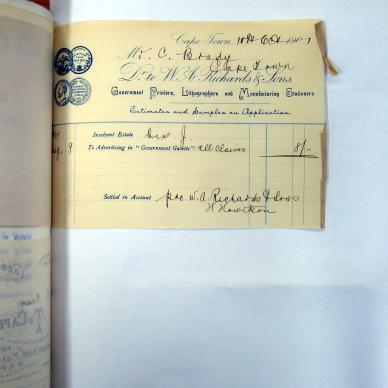 Cape Town 10th Oct 190
Mr. C. Brady
Cape Town
Dr. to W. A. Richards & Sons,
Government Printers, Lithographers and Manufacturing Stationers.
Estimates and Samples on Application.
Insolvent Estate
9 To Advertising in "Government Gazette" all Claims 8/-
Settled in Account pro W. A. Richards & Sons